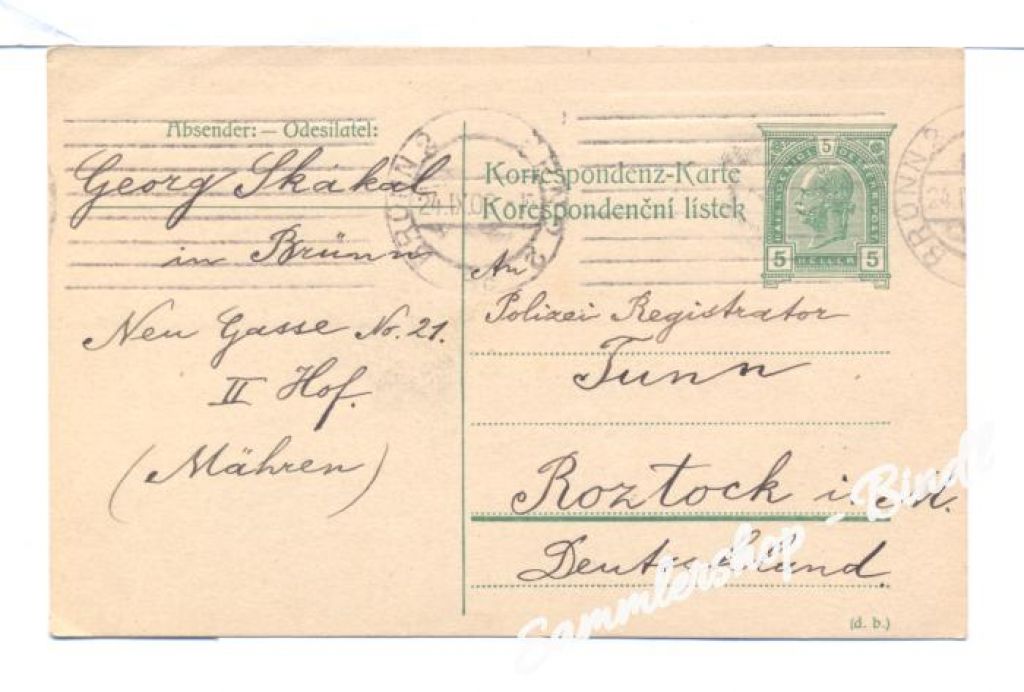 Absender: — Odesílatel:
Georg Skákal
in Brünn
Neu Gasse No. 21.
II Hof.
(Mähren)
BRÜNN 2
24.IX.0
BRÜNN 2
Korrespondenz-Karte
Korespondenční lístek
5
KAIS. KÖNIGL. OESTERR. POST
5 HELLER 5
An
Polizei Registrator
Tunn
Roztock i. M.
Deutschland
(d. b.)
BRÜNN 2
24.I
Sammlershop - Bindl